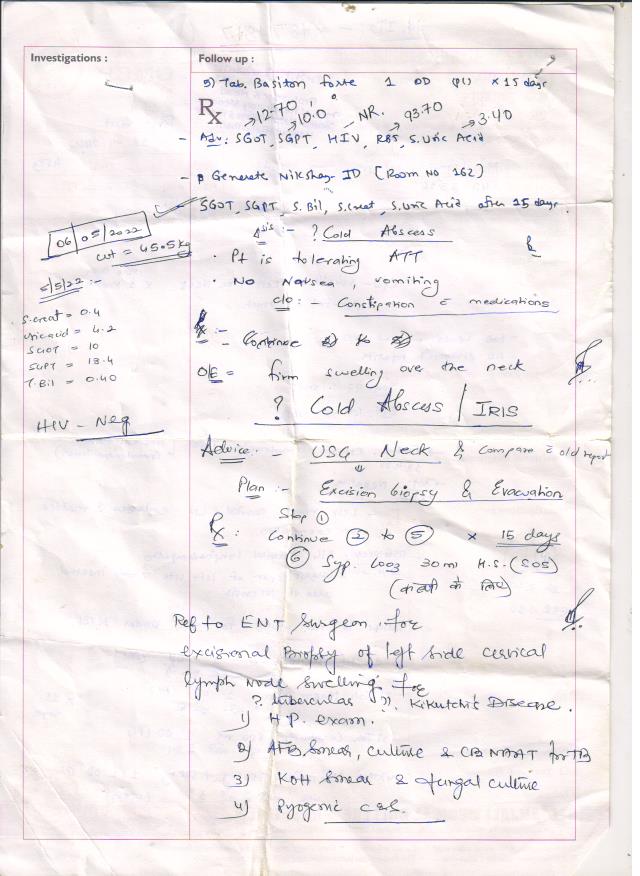 Investigations :
Follow up :
5) Tab. Basiton forte 1 OD (PC) x 15 days
Rx
12.70 10.0 NR. 93.70 3.40
- Adv: SGOT, SGPT, HIV, RBS, S. Uric Acid
- Generate Nikshay-ID (Room No 162)
SGOT, SGPT, S. Bil, S. creat, S. Uric Acid after 15 days.
06/05/2022
wt = 45.5 kg
5/5/22 :-
S. creat = 0.4
Uric acid = 4.2
SGOT = 10
SGPT = 13.4
T. Bil = 0.40
HIV - Neg
:- ? Cold Abscess
• Pt is tolerating ATT
• No Nausea, vomiting
c/o :- Constipation c medications
Rx :-
- Continue
O/E = firm swelling over the neck
? Cold Abscess / IRIS
Advice :- USG Neck & compare c old report
Plan :- Excision biopsy & Evacuation
Stop ①
Rx : Continue ② to ⑤ x 15 days
⑥ Syp. Looz 30 ml H.S. (SOS)
(कब्जी के लिए)
Ref to ENT Surgeon for
excisional Biopsy of left side cervical
lymph node swelling for
? tuberculas ?? Kikutchi's Disease.
1) H.P. exam.
2) AFB Smear, culture & CBNAAT for TB
3) KOH Smear & fungal culture
4) Pyogenic c&s.